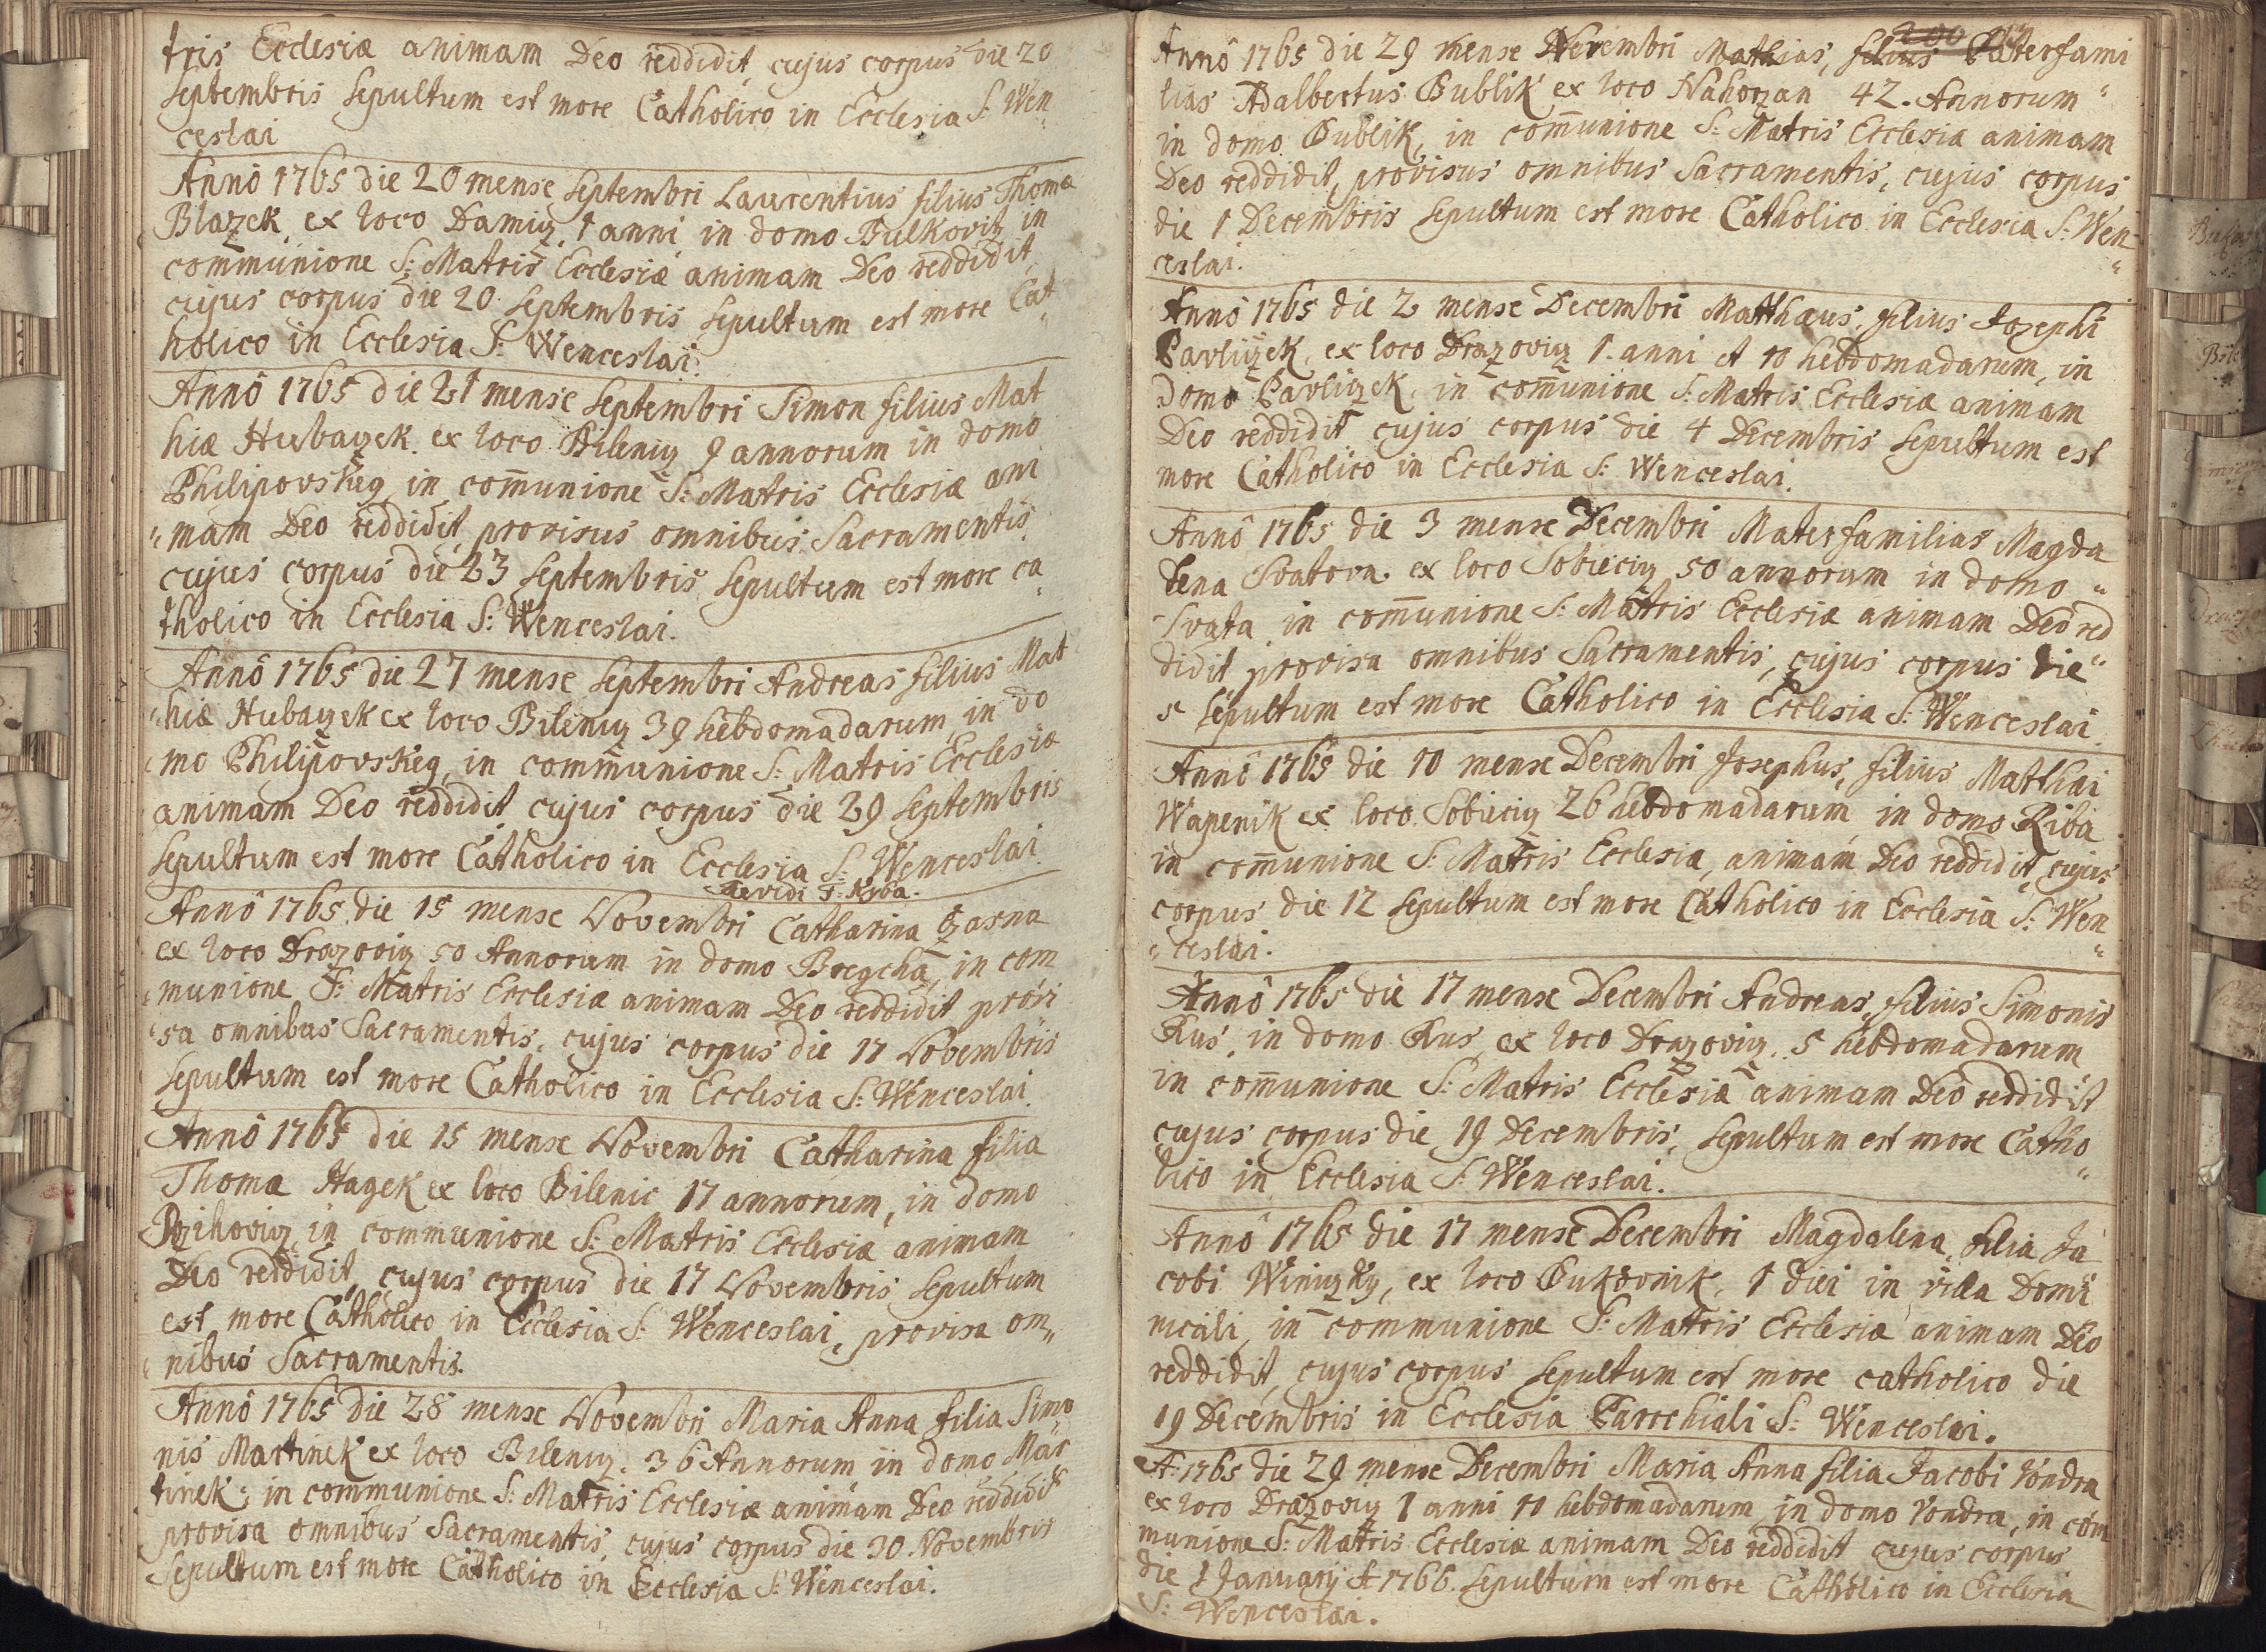 tris Ecclesiæ animam Deo reddidit, cujus corpus die 20
Septembris Sepultum est more Catholico in Ecclesia S: Wen„
ceslai
Annô 1765 die 20 mense Septembri Laurentius filius Thomæ
Blazek, ex loco Damiz, 1 anni in domo Bulkoviz in
communione S: Matris Ecclesiæ animam Deo reddidit,
cujus corpus die 20 Septembris Sepultum est more Cat„
holico in Ecclesia S: Wenceslai.
Annô 1765 die 21 mense Septembri Simon filius Mat
hiæ Hubazek ex loco Bileniz 9 annorum in domo
Philipovskeg in com̄unione S: Matris Ecclesiæ ani
„mam Deo reddidit, provisus omnibus Sacramentis,
cujus corpus die 23 Septembris Sepultum est more ca„
tholico in Ecclesia S: Wenceslai.
Annô 1765 die 27 mense Septembri Andreas filius Mat
„hiæ Hubazek ex loco Bileniz 39 hebdomadarum, in do
mo Philipovskeg, in communione S: Matris Ecclesiæ
animam Deo reddidit, cujus corpus die 29 Septembris
Sepultum est more Catholico in Ecclesia S: Wenceslai.
Revidi F: Ryba.
Annô 1765 die 15 mense Novembri Catharina Zasna
ex loco Drazoviz 50 Annorum in domo Bregcha, in com
munione S: Matris Ecclesiæ animam Deo reddidit provi
„sa omnibus Sacramentis, cujus corpus die 17 Novembris
Sepultum est more Catholico in Ecclesia S: Wenceslai.
Annô 1765 die 15 mense Novembri Catharina filia
Thomæ Hagek ex loco Bilenic 17 annorum, in domo
Rzihoviz, in communione S: Matris Ecclesiæ animam
Deo reddidit, cujus corpus die 17 Novembris Sepultum
est more Catholico in Ecclesia S: Wenceslai, provisa om„
nibus Sacramentis.
Annô 1765 die 28 mense Novembri Maria Anna filia Simo
nis Martinek ex loco Bileniz. 36 Annorum in domo Mar
tinek; in communione S: Matris Ecclesiæ animam Deo reddidit
provisa omnibus Sacramentis, cujus corpus die 30 Novembris
Sepultum est more Catholico in Ecclesia S: Wenceslai.
200
Annô 1765 die 29 mense Novembri Mathias, filius Paterfami
lias Adalbertus Bublik ex loco Nahorzan 42. Annorum „
in domo Bublik, in com̄unione S: Matris Ecclesiæ animam
Deo reddidit, provisus omnibus Sacramentis, cujus corpus
die 1 Decembris Sepultum est more Catholico in Ecclesia S: Wen„
ceslai.
Annô 1765 die 2 mense Decembri Matthæus, filius Josephi
Pavlizek, ex loco Drazoviz 1. anni et 10 hebdomadarum, in
domo Pavlizek, in com̄unione S: Matris Ecclesiæ animam
Deo reddidit cujus corpus die 4 Decembris Sepultum est
more Catholico in Ecclesia S: Wenceslai.
Annô 1765 die 3 mense Decembri Materfamilias Magda
lena Svatova ex loco Sobieciz 50 annorum in domo „
Svata in com̄unione S: Matris Ecclesiæ animam Deo red
didit provisa omnibus Sacramentis, cujus corpus die „
5 Sepultum est more Catholico in Ecclesia S: Wenceslai
Annô 1765 die 10 mense Decembri Josephus, filius Matthæi
Wapenik ex loco Sobieciz 26 hebdomadarum in domo Riba
in com̄unione S: Matris Ecclesiæ, animam Deo reddidit, cujus
corpus die 12 Sepultum est more Catholico in Ecclesia S: Wen„
„ceslai.
Annô 1765 die 17 mense Decembri Andreas, filius Simonis
Kus, in domo Kus, ex loco Drazoviz, 5 hebdomadarum
in com̄unione S: Matris Ecclesiæ animam Deo reddidit
cujus corpus die 19 Decembris, Sepultum est more Catho„
lico in Ecclesia S: Wenceslai.
Annô 1765 die 17 mense Decembri Magdalena, filia Ja
cobi Winizky, ex loco Bukovnik, 1 diei in villa Domi
nicali, in communione S: Matris Ecclesiæ animam Deo
reddidit, cujus corpus Sepultum est more catholico die
19 Decembris in Ecclesia Parrchiali S: Wenceslai.
A: 1765 die 29 mense Decembri Maria Anna filia Jacobi Vondra
ex loco Drazoviz 1 anni 10 hebdomadarum, in domo Vondra, in com
munione S: Matris Ecclesiæ animam Deo reddidit cujus corpus
die 1 Januarij A: 1766. Sepultum est more Catholico in Ecclesia
S: Wenceslai.